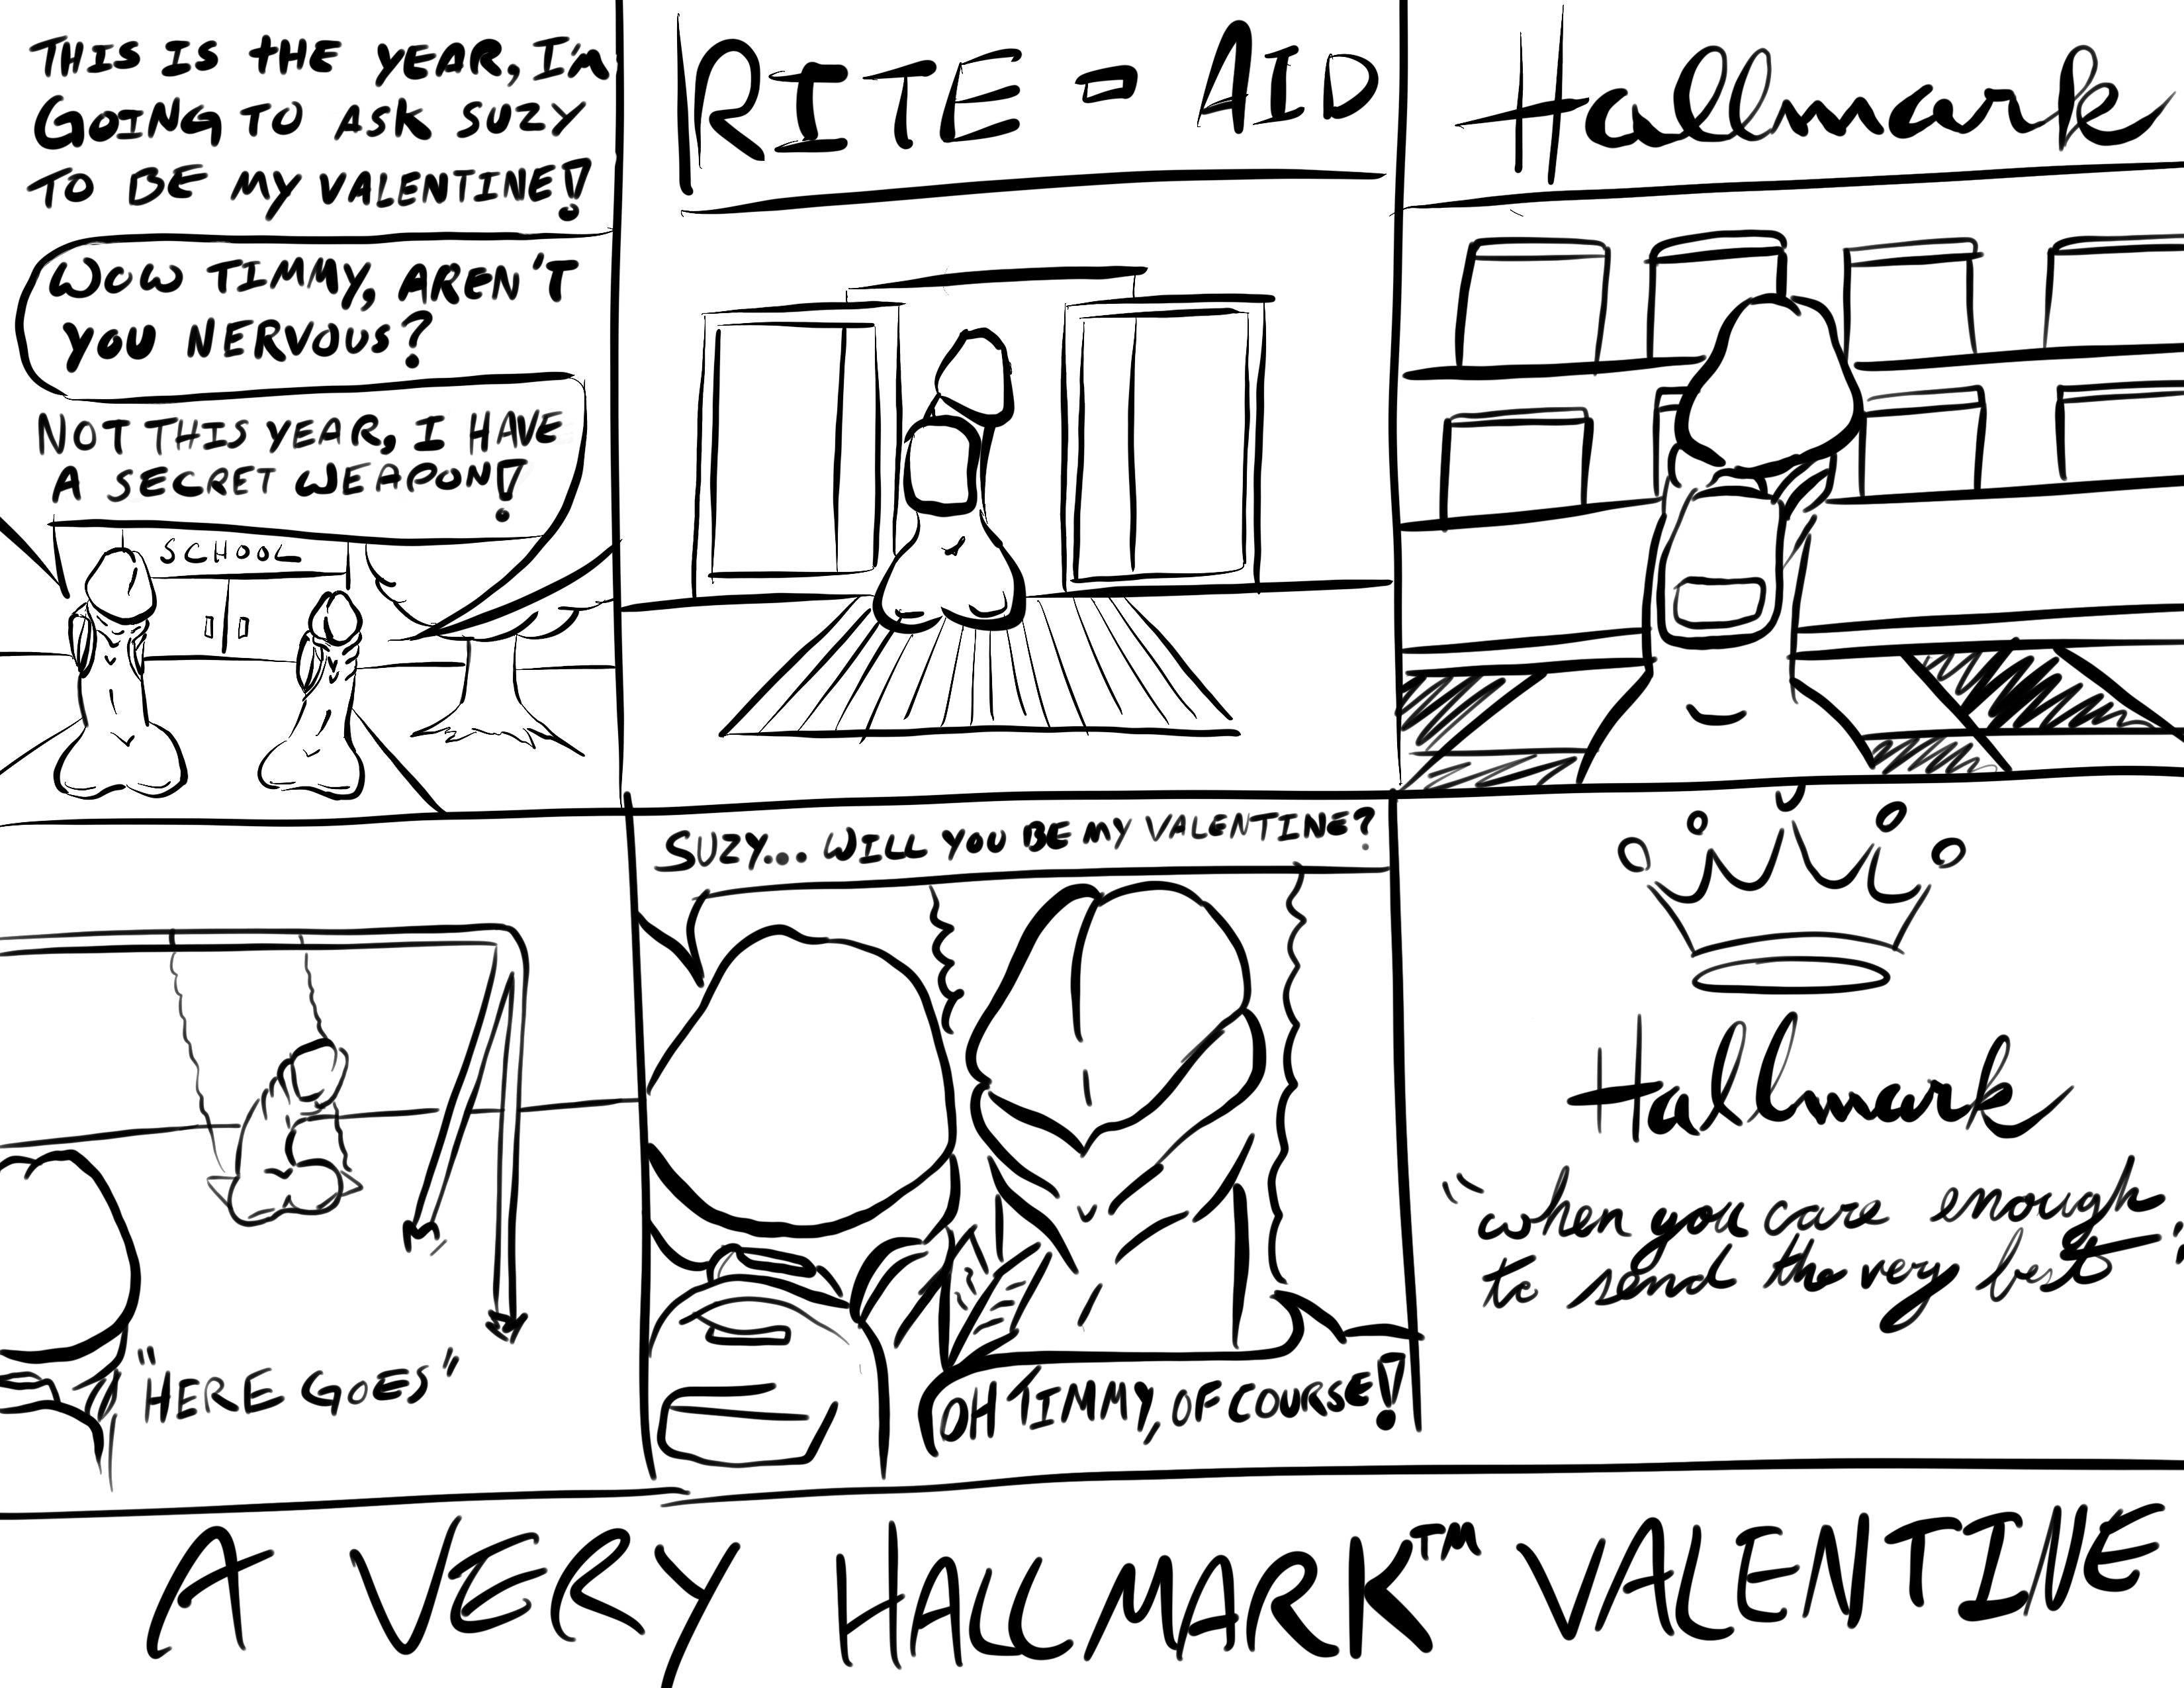 THIS IS THE YEAR, I'M
GOING TO ASK SUZY
TO BE MY VALENTINE!
WOW TIMMY, AREN'T
YOU NERVOUS?
NOT THIS YEAR, I HAVE
A SECRET WEAPON!
SCHOOL
RITE-AID
Hallmark
"HERE GOES"
SUZY... WILL YOU BE MY VALENTINE?
OH TIMMY, OF COURSE!
Hallmark
"when you care enough
to send the very best"
A VERY HALLMARK™ VALENTINE